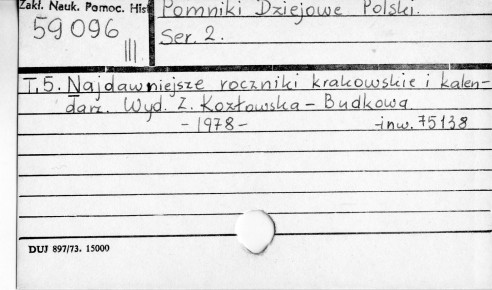 Zakł. Nauk. Pomoc. Hist
59096
III.
Pomniki Dziejowe Polski.
Ser. 2.
T. 5. Najdawniejsze roczniki krakowskie i kalen-
darz. Wyd. Z. Kozłowska - Budkowa
- 1978 -
inw. 75138
DUJ 897/73. 15000